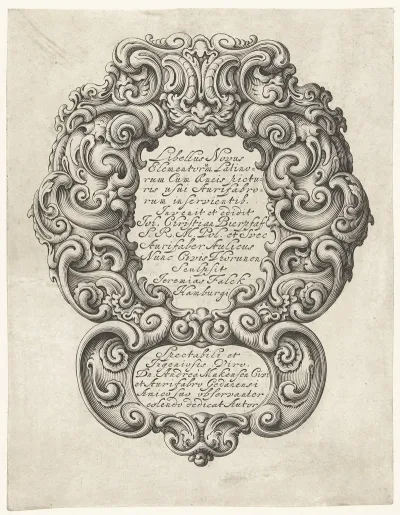 Libellus Novus
Elementorum Latino-
rum Cum Raris pictu-
ris usui Aurifabro-
rum inservientib.
Invenit et edidit
Joh. Christian Bierpfaff
S. R. M. Pol. et Svec
Aurifaber Aulicus
Nunc Civis Torunen
Sculpsit
Jeremias Falck
Hamburgi
Spectabili et
Ingenioso Viro
Dn. Andreæ Makensen Civi
et Aurifabro Gedanensi
Amico suo observander
colendo dedicat Autor